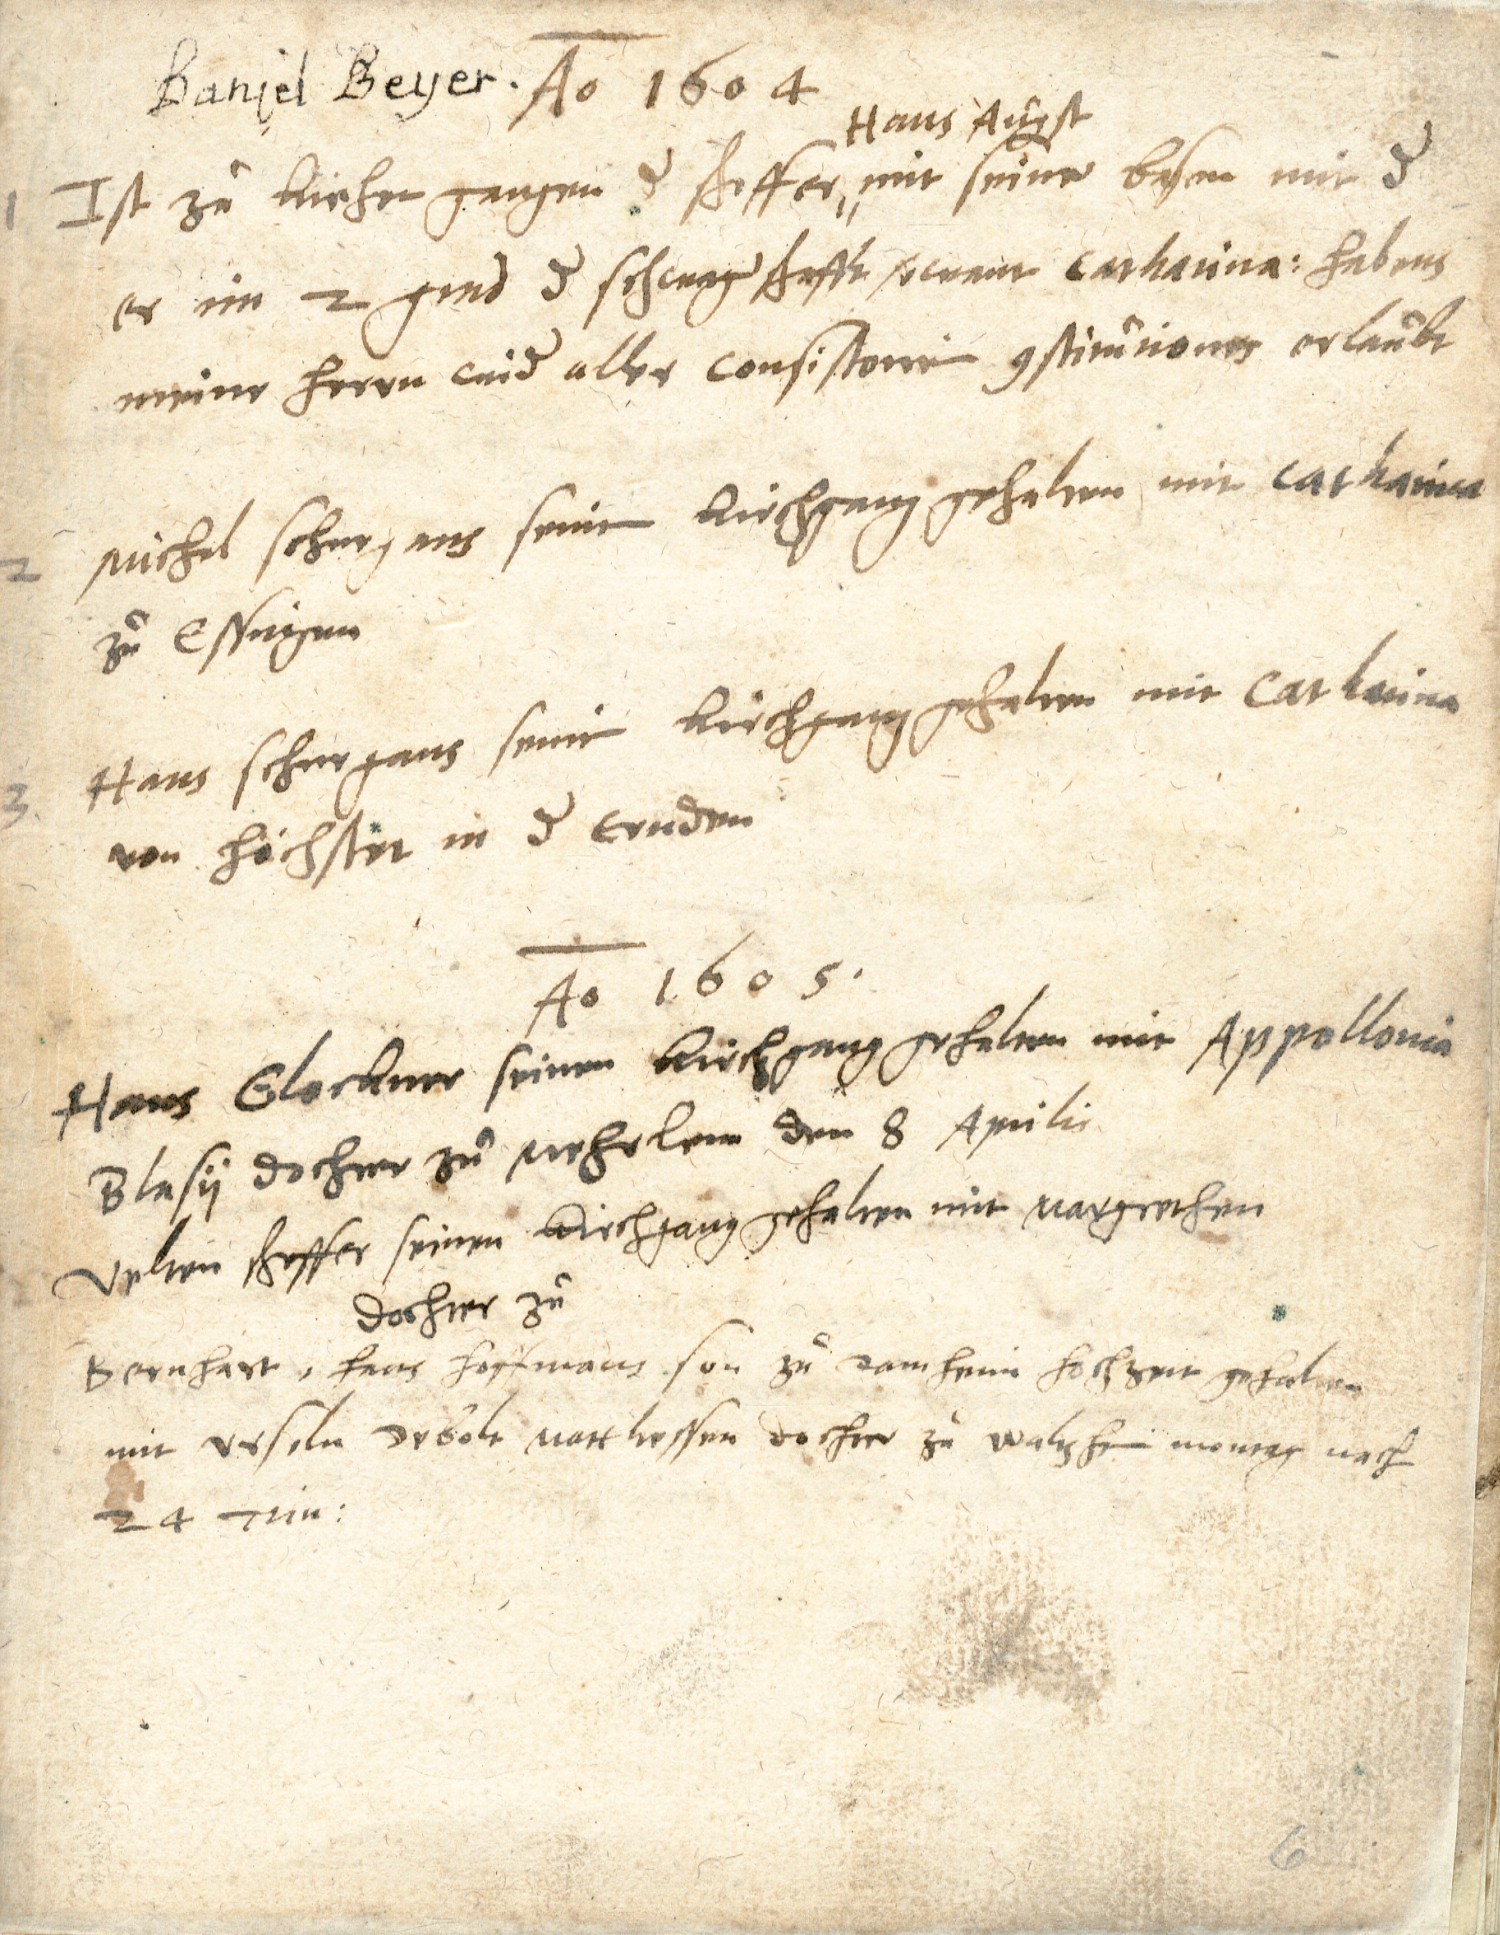 Banjel Beyer. Ao 1604
Haus Augst
1 Ist zu kirchen gangen d scheffer, mit seiner basen mit d
er im 2 grad d schwagerschafft verwant Catharina: habens
meine herrn wid aller Consistorii 9stitutiones erlaubt
2 Michel schurgans seine kirchgang gehalten mit Catharina
zu Essingen
3. Hans schurgans seine kirchgang gehalten mit Catharina
von höchstet in d Ernden
Ao 1605.
Hans Glockner seinen kirchgang gehalten mit Appollonia
Blasij dochter zu Mehrlem den 8 Aprilis
Velten scheffer seinen kirchgang gehalten mit Margrethen
dochter zu
Bernhart, hans hoffmans son zu damheim hochzeit gehalten
mit Urseln Debolt Matthessen dochter zu Walsheim montag nach
24 Trin:
6